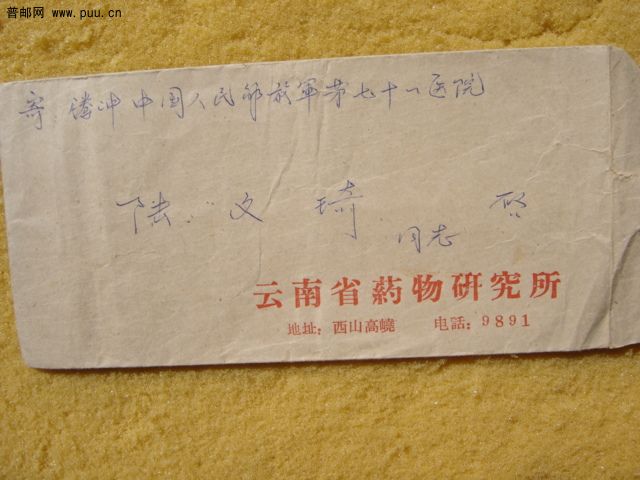 普邮网 www.puu.cn
寄 腾冲中国人民解放軍第七十一医院
陆文琦
同志 啓
云南省药物研究所
地址：西山高嶢 电話：9891